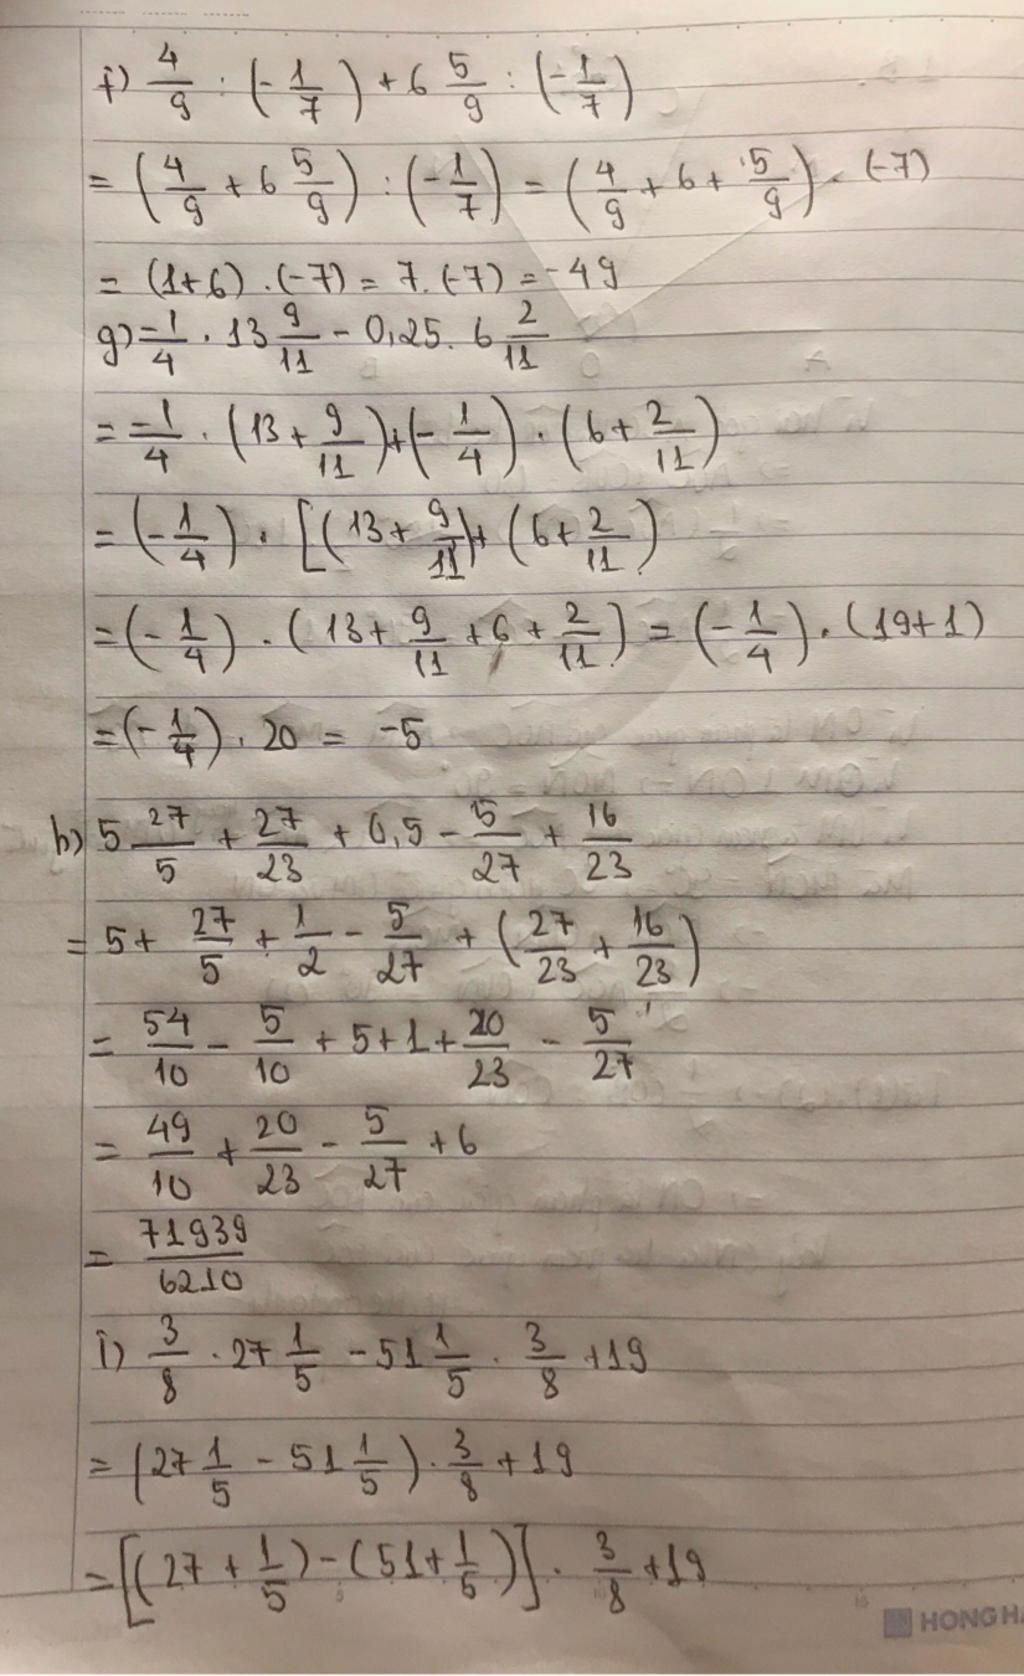 f) 4/9 : (-1/7) + 6 5/9 : (-1/7)
= (4/9 + 6 5/9) : (-1/7) = (4/9 + 6 + 5/9) . (-7)
= (1+6) . (-7) = 7. (-7) = -49
g) -1/4 . 13 9/11 - 0,25. 6 2/11
= -1/4 . (13 + 9/11) + (-1/4) . (6 + 2/11)
= (-1/4) . [(13 + 9/11) + (6 + 2/11)
= (-1/4) . (13 + 9/11 + 6 + 2/11) = (-1/4) . (19+1)
= (-1/4) . 20 = -5
h) 5 27/5 + 27/23 + 0,5 - 5/27 + 16/23
= 5 + 27/5 + 1/2 - 5/27 + (27/23 + 16/23)
= 54/10 - 5/10 + 5 + 1 + 20/23 - 5/27
= 49/10 + 20/23 - 5/27 + 6
= 71939/6210
i) 3/8 . 27 1/5 - 51 1/5 . 3/8 + 19
= (27 1/5 - 51 1/5) . 3/8 + 19
= [(27 + 1/5) - (51 + 1/5)] . 3/8 + 19
HONG HA